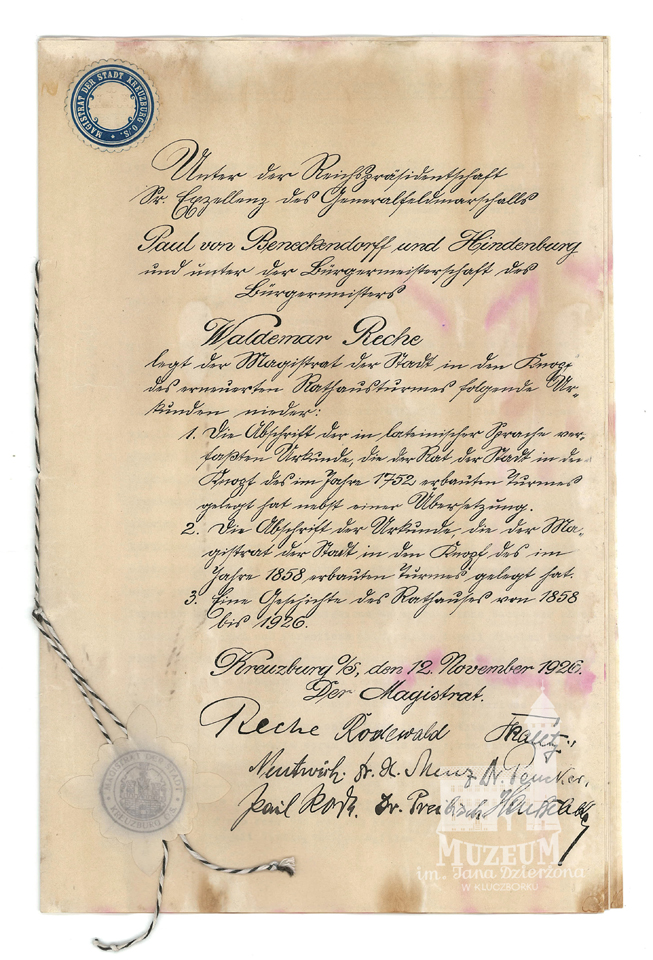 MAGISTRAT DER STADT KREUZBURG O.-S.
Unter der Reichspräsidentschaft
Sr. Exzellenz des Generalfeldmarschalls
Paul von Beneckendorff und Hindenburg
und unter der Bürgermeisterschaft des
Bürgermeisters
Waldemar Reche
legt der Magistrat der Stadt in den Knopf
des erneuerten Rathausturmes folgende Ur-
kunden nieder:
1. Die Abschrift der in lateinischer Sprache ver-
faßten Urkunde, die der Rat der Stadt in den
Knopf des im Jahre 1752 erbauten Turmes
gelegt hat nebst einer Übersetzung.
2. Die Abschrift der Urkunde, die der Ma-
gistrat der Stadt in den Knopf des im
Jahre 1858 erbauten Turmes gelegt hat.
3. Eine Geschichte des Rathauses von 1858
bis 1926.
Kreuzburg O/S, den 12. November 1926.
Der Magistrat.
Reche Rodewald
Dr. Preibisch
MAGISTRAT DER STADT KREUZBURG
MUZEUM
im. Jana Dzierżona
W KLUCZBORKU